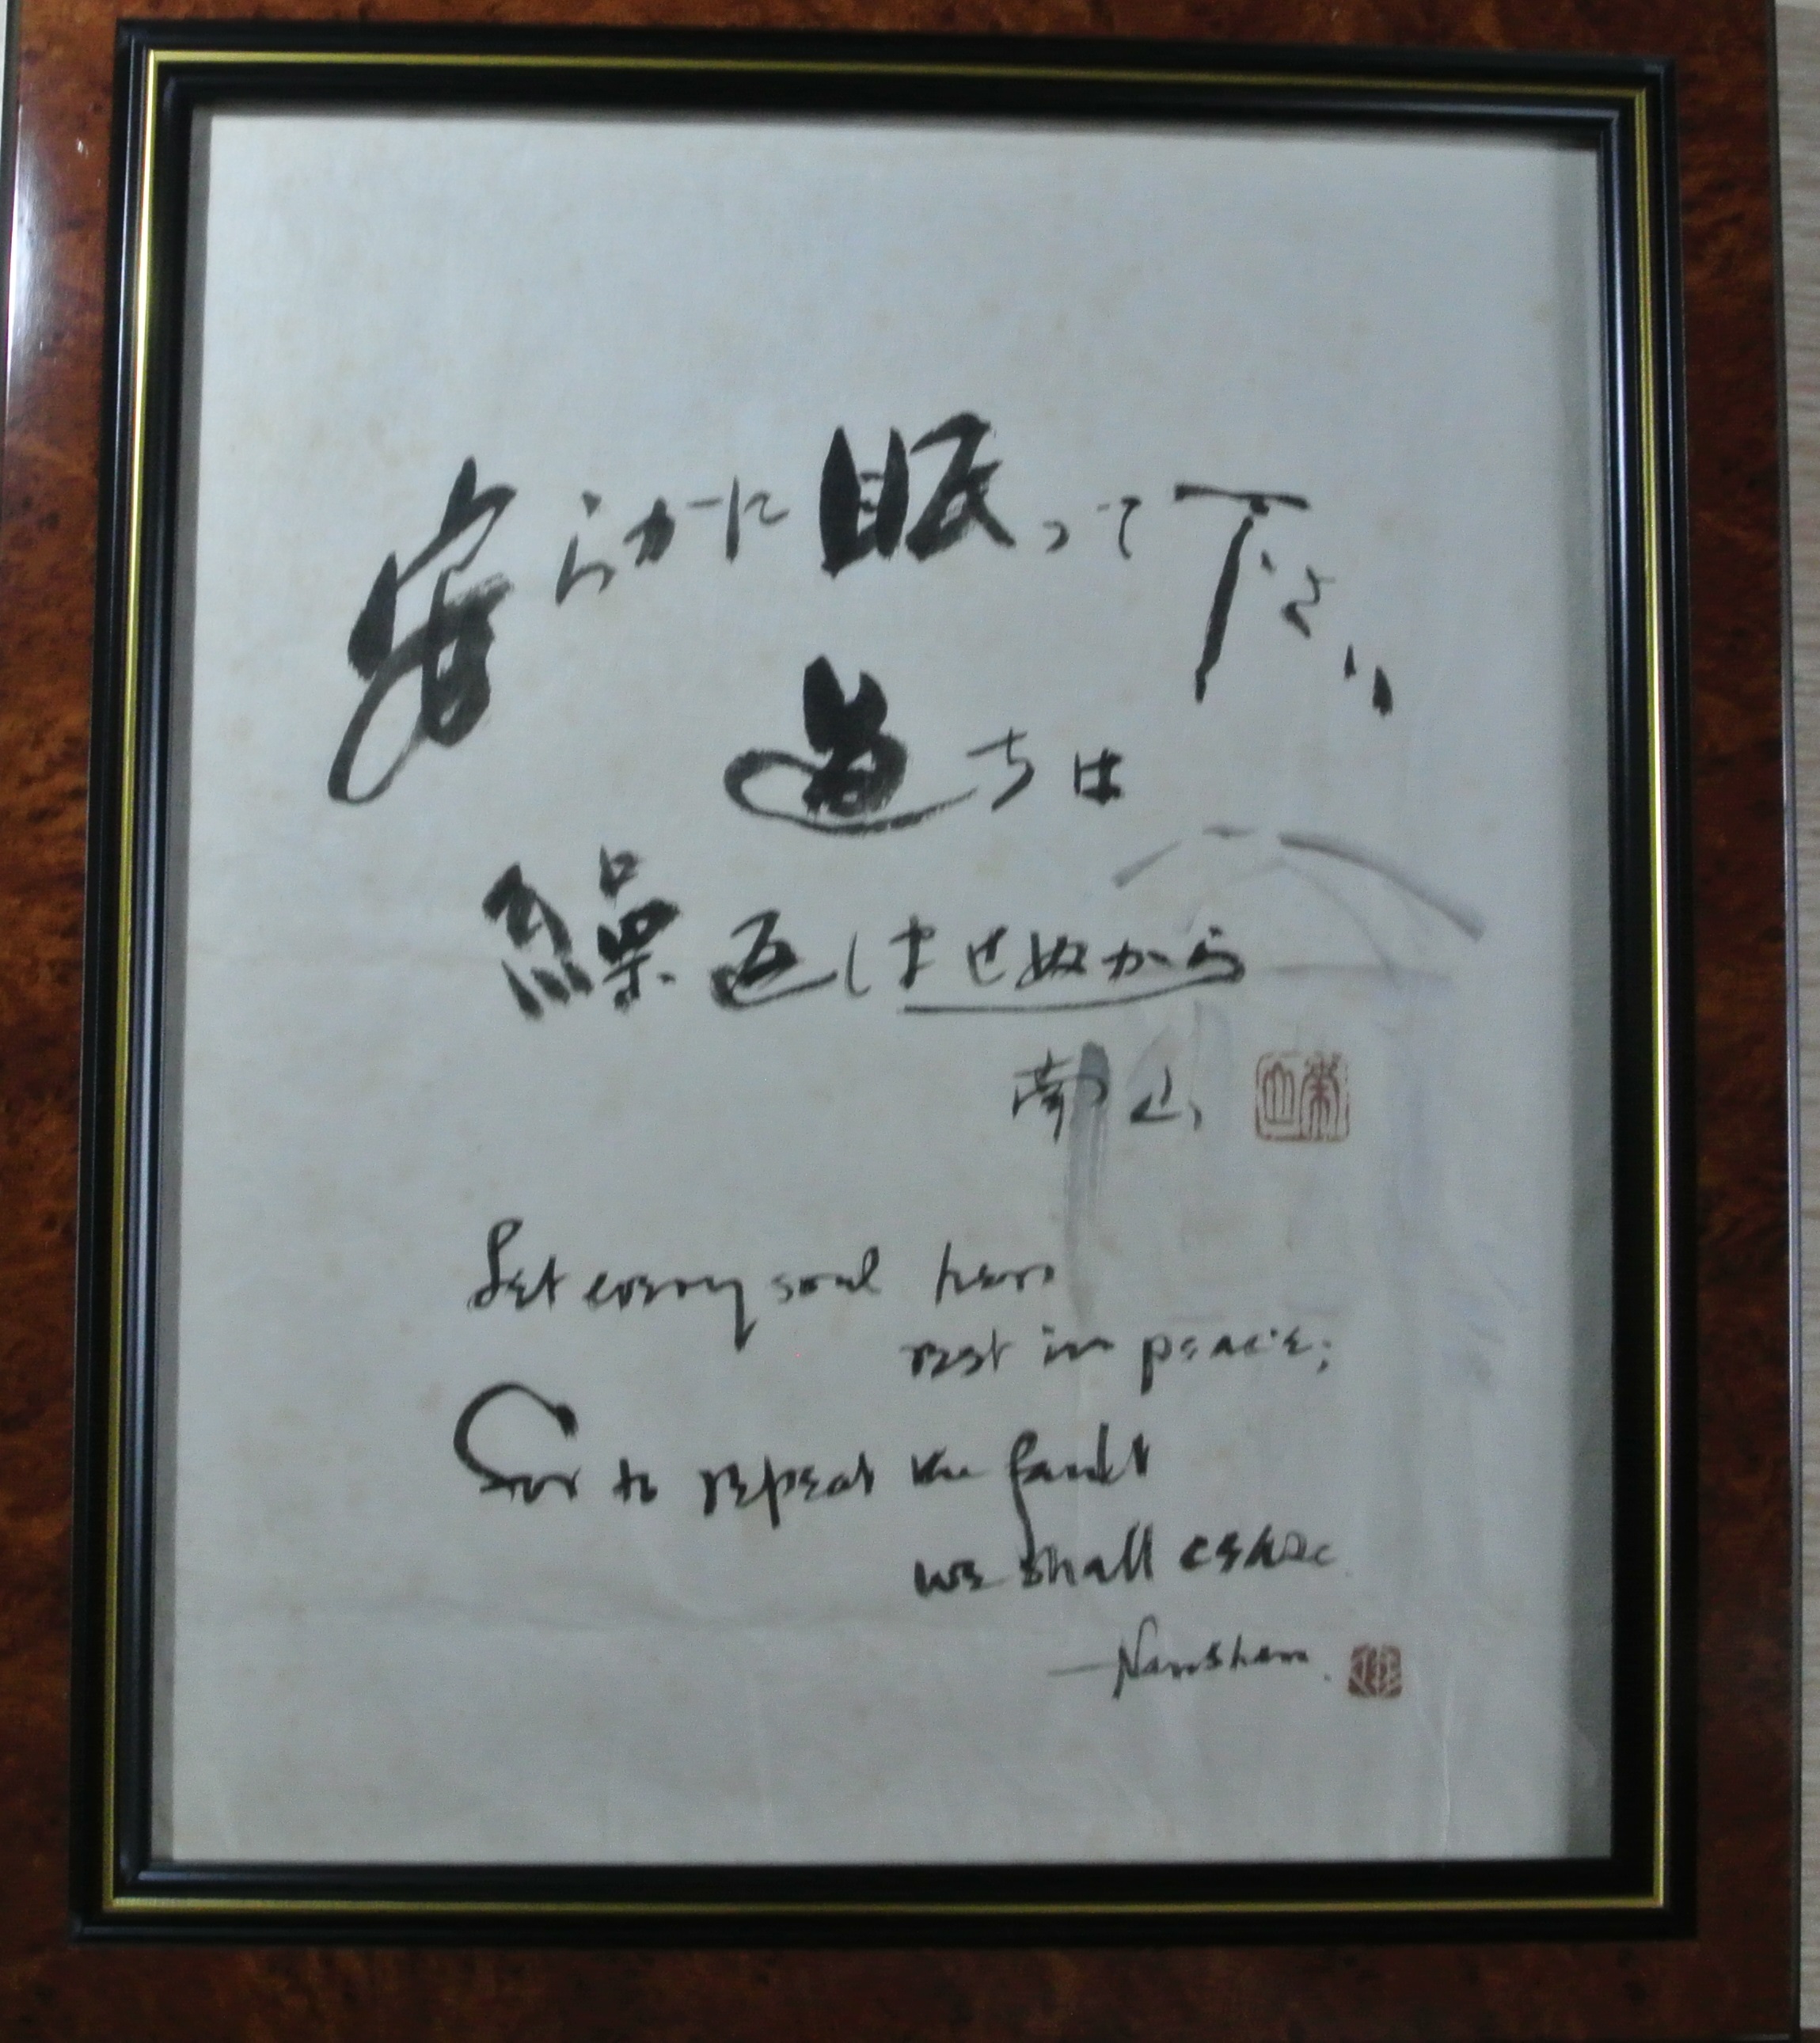 安らかに眠って下さい
過ちは
繰返しませぬから
南山
Let every soul here
rest in peace;
For to repeat the fault
we shall cease
—Nanshan.